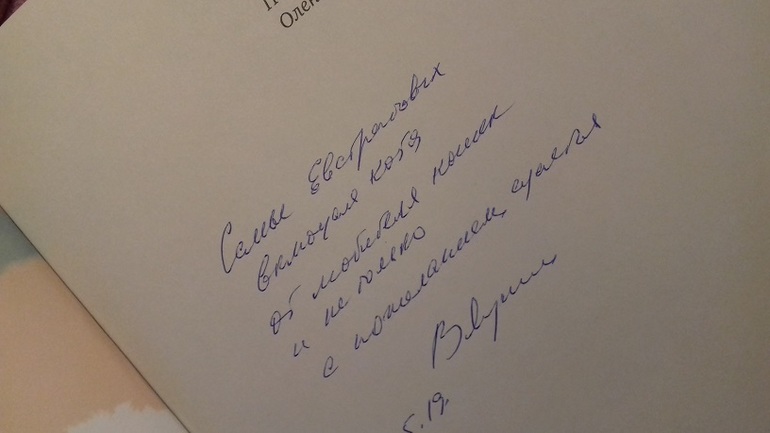 Олен
Семье Евстратовых
включая кота
от любителя кошек
и не только
с пожеланием счастья
5.19.